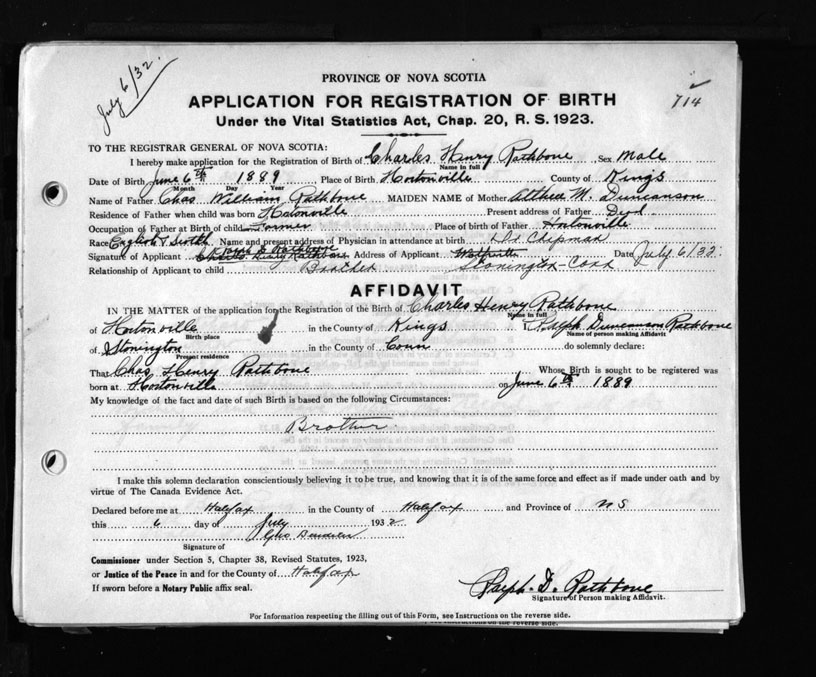 July 6/32.
714
PROVINCE OF NOVA SCOTIA
APPLICATION FOR REGISTRATION OF BIRTH
Under the Vital Statistics Act, Chap. 20, R. S. 1923.
TO THE REGISTRAR GENERAL OF NOVA SCOTIA:
I hereby make application for the Registration of Birth of Charles Henry Rathbone Sex Male
Name in full
Date of Birth June 6th 1889 Place of Birth Hortonville County of Kings
Month Day Year
Name of Father Chas William Rathbone MAIDEN NAME of Mother Althea M. Duncanson
Residence of Father when child was born Hortonville Present address of Father Dead
Occupation of Father at Birth of child Farmer Place of birth of Father Hortonville
Race English & Scotch Name and present address of Physician in attendance at birth Dr Chipman
Ralph D Rathbone
Signature of Applicant Charles Henry Rathbone Address of Applicant Date July 6/32
Relationship of Applicant to child Brother Stonington Conn
AFFIDAVIT
IN THE MATTER of the application for the Registration of the Birth of Charles Henry Rathbone
Name in full
of Hortonville in the County of Kings I, Ralph Duncanson Rathbone
Birth place Name of person making Affidavit
of Stonington in the County of Conn do solemnly declare:
Present residence
That Chas Henry Rathbone Whose Birth is sought to be registered was
born at Hortonville on June 6th 1889
My knowledge of the fact and date of such Birth is based on the following Circumstances:
Brother
I make this solemn declaration conscientiously believing it to be true, and knowing that it is of the same force and effect as if made under oath and by
virtue of The Canada Evidence Act.
Declared before me at Halifax in the County of Halifax and Province of NS
this 6 day of July 1932
Geo
Signature of
Commissioner under Section 5, Chapter 38, Revised Statutes, 1923,
or Justice of the Peace in and for the County of Halifax
If sworn before a Notary Public affix seal.
Ralph. D. Rathbone
Signature of Person making Affidavit.
For Information respecting the filling out of this Form, see Instructions on the reverse side.
see Instructions on the reverse side.